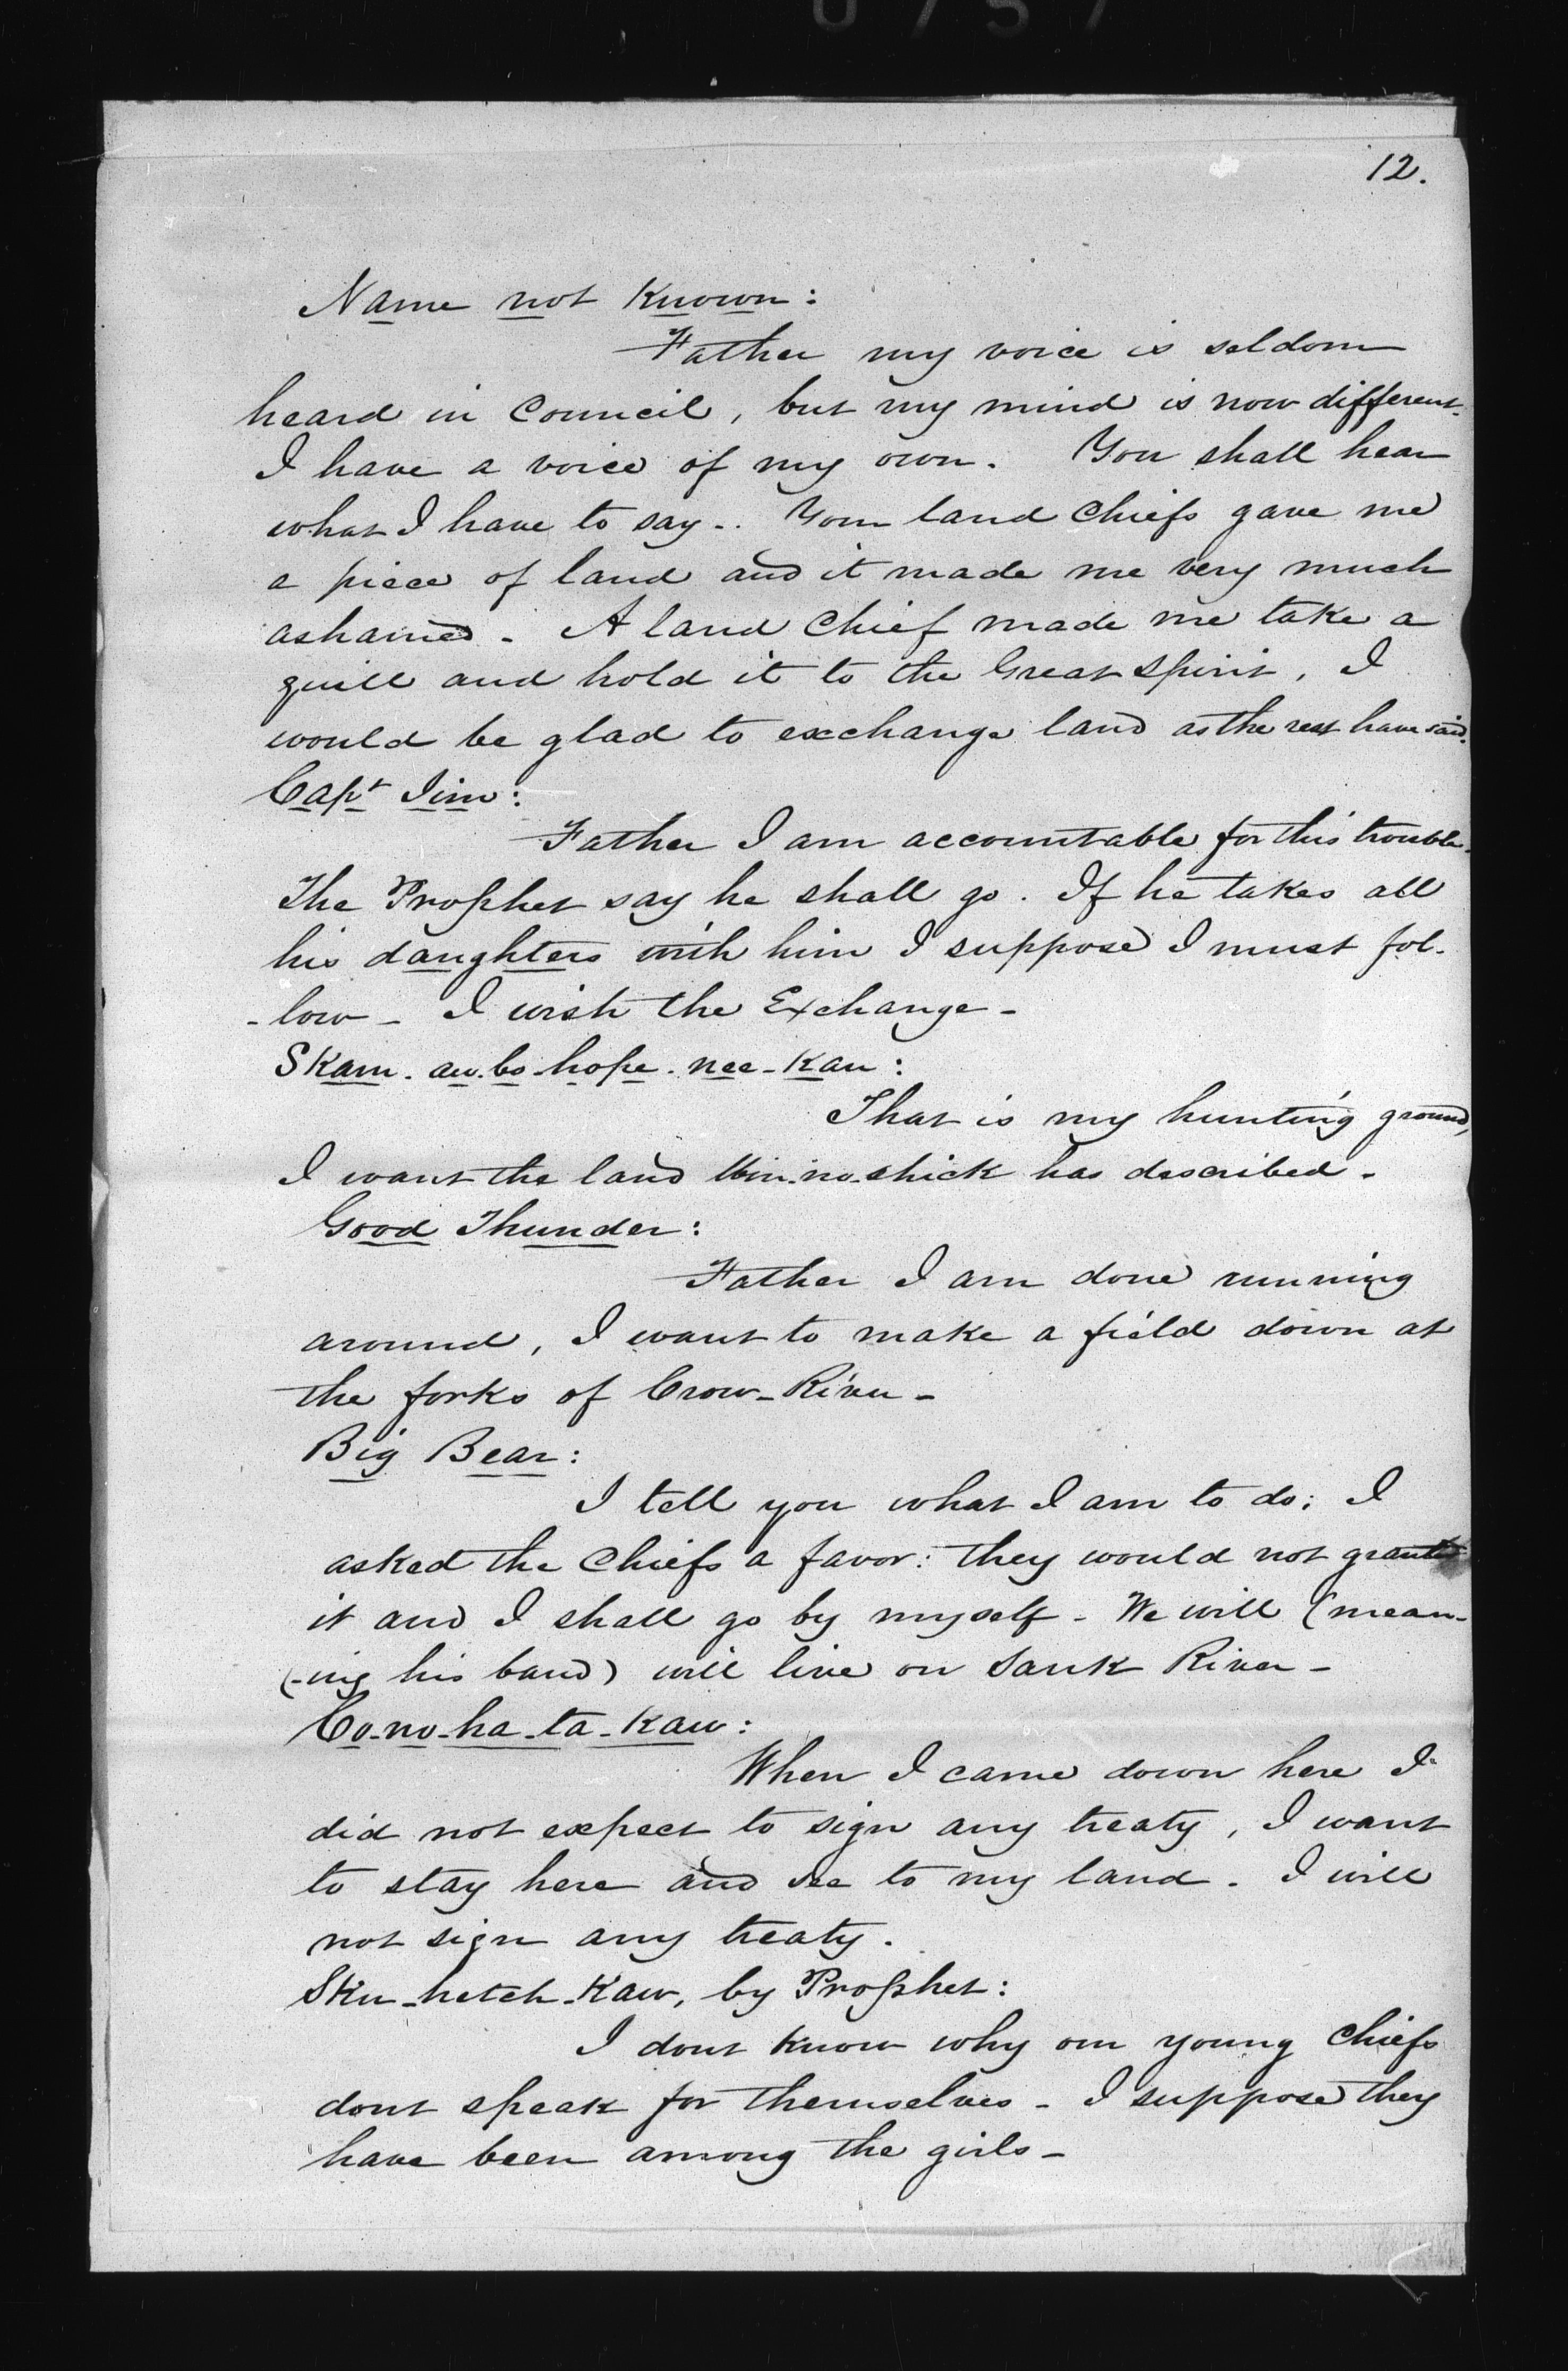 12.
Name not Known:
Father my voice is seldom
heard in Council, but my mind is now different.
I have a voice of my own. You shall hear
what I have to say.. Your land Chiefs gave me
a piece of land and it made me very much
ashamed - A land Chief made me take a
quill and hold it to the Great Spirit, I
would be glad to exchange land as the rest have said.
Capt Jim:
Father I am accountable for this trouble.
The Prophet say he shall go. If he takes all
his daughters with him I suppose I must fol-
-low - I wish the Exchange -
Skam-aw-bo-hope-nee-Kaw:
That is my hunting ground,
I want the land Win-no-shick has described -
Good Thunder:
Father I am done running
around, I want to make a field down at
the forks of Crow-River -
Big Bear:
I tell you what I am to do: I
asked the Chiefs a favor: they would not grant
it and I shall go by myself - We will (mean-
(-ing his band) will live on Sauk River -
Co-no-ha-ta-Kaw:
When I came down here I
did not expect to sign any treaty, I want
to stay here and see to my land. I will
not sign any treaty.
Sku-hetch-Kaw, by Prophet:
I dont know why our young Chiefs
dont speak for themselves - I suppose they
have been among the girls -